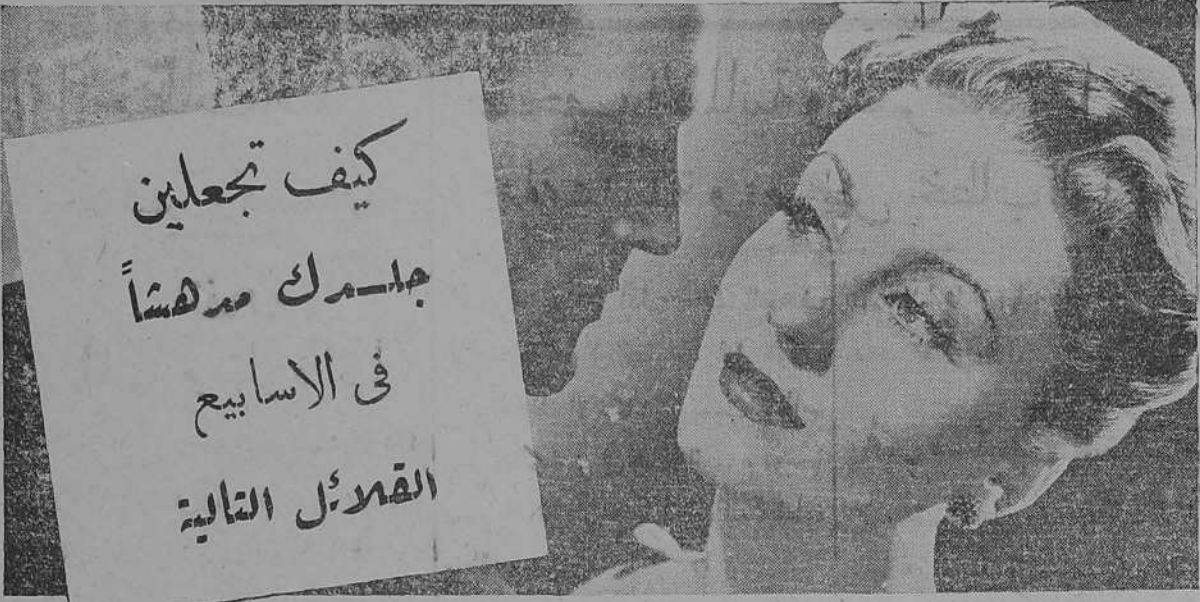 كيف تجعلين
جلدك مدهشاً
فى الاسابيع
القلائل التالية